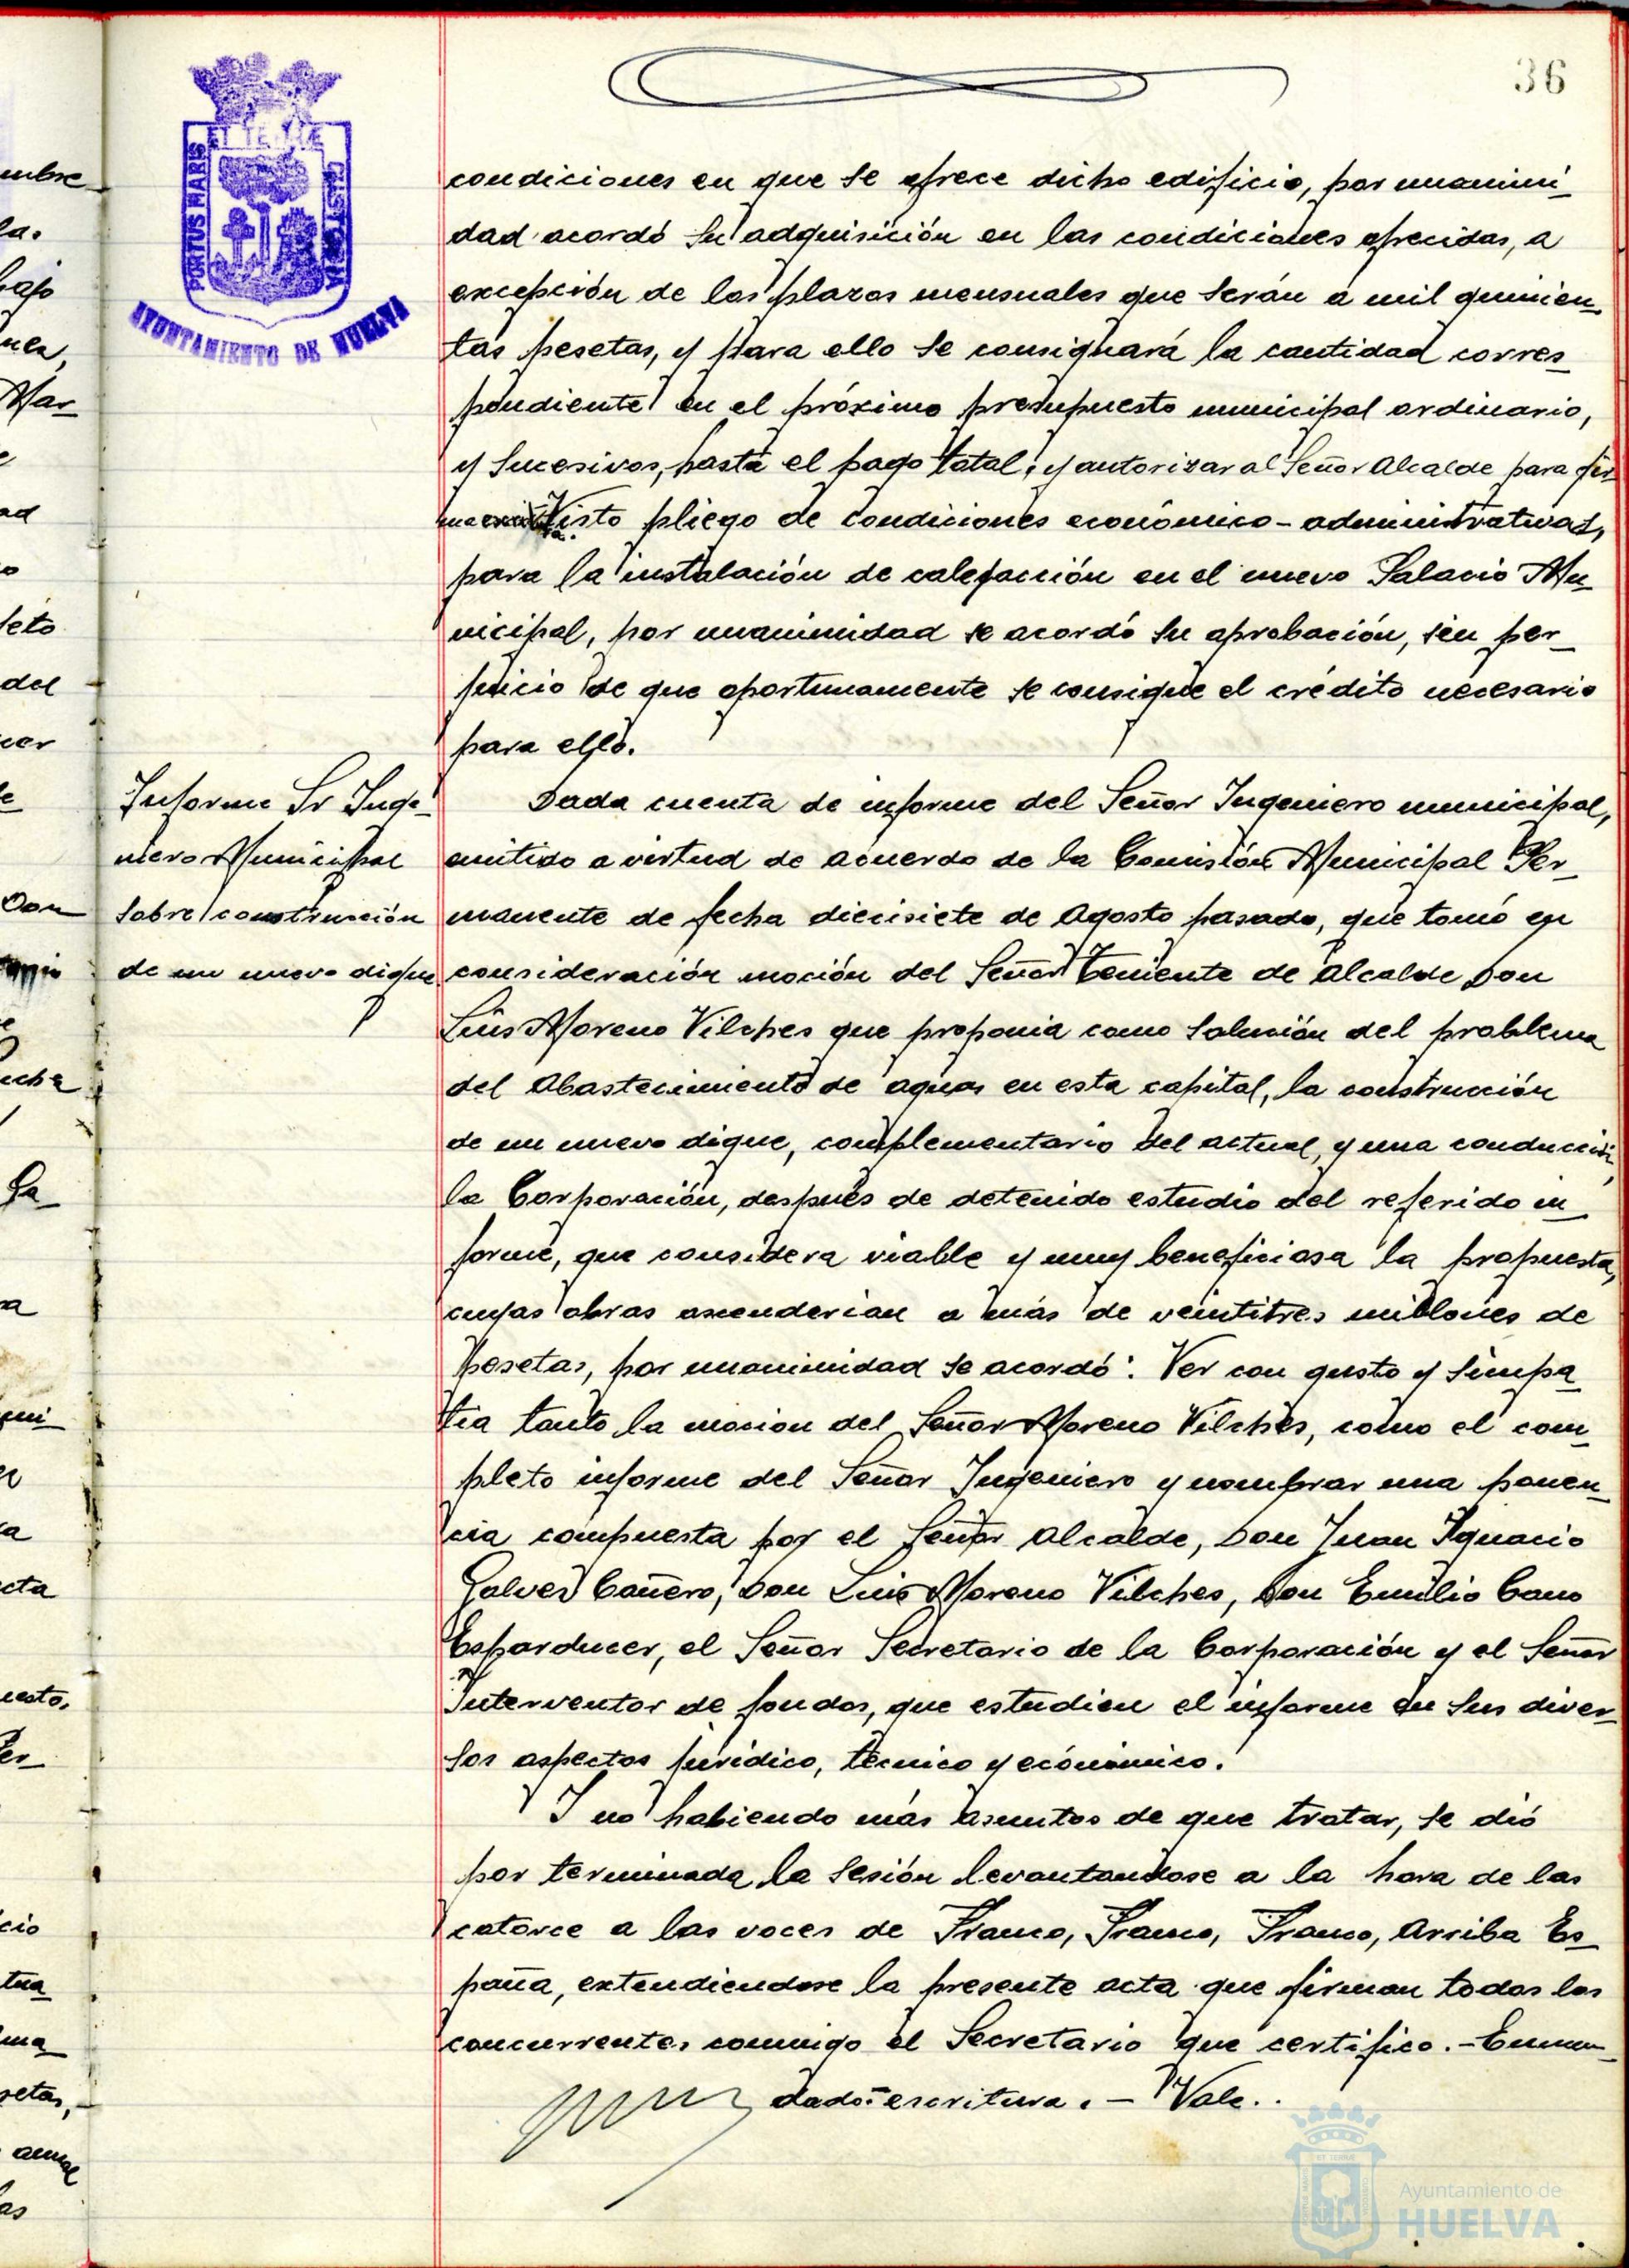 36
PORTUS MARIS
ET TERRÆ
CUSTODIA
AYUNTAMIENTO DE HUELVA
condiciones en que se ofrece dicho edificio, por unanimi-
dad acordó su adquisición en las condiciones ofrecidas, a
excepción de los plazos mensuales que serán a mil quinien-
tas pesetas, y para ello se consignará la cantidad corres-
pondiente en el próximo presupuesto municipal ordinario,
y sucesivos, hasta el pago total; y autorizar al Señor Alcalde para fir-
Visto pliego de condiciones económico-administrativas,
para la instalación de calefacción en el nuevo Palacio Mu-
nicipal, por unanimidad se acordó su aprobación, sin per-
juicio de que oportunamente se consigue el crédito necesario
para ello.
Informe Sr Inge-
niero Municipal
sobre construcción
de un nuevo dique
Dada cuenta de informe del Señor Ingeniero municipal,
emitido a virtud de acuerdo de la Comisión Municipal Per-
manente de fecha diecisiete de Agosto pasado, que tomó en
consideración moción del Señor Teniente de Alcalde Don
Luis Moreno Vilches que proponia como solución del problema
del Abastecimiento de aguas en esta capital, la construcción
de un nuevo dique, complementario del actual, y una conducción,
la Corporación, después de detenido estudio del referido in-
forme, que considera viable y muy beneficiosa la propuesta,
cuyas obras ascenderian a más de veintitres millones de
pesetas, por unanimidad se acordó: Ver con gusto y simpa-
tia tanto la mocion del Señor Moreno Vilches, como el com-
pleto informe del Señor Ingeniero y nombrar una ponen-
cia compuesta por el Señor Alcalde, Don Juan Ignacio
Galvez Cañero, Don Luis Moreno Vilches, Don Emilio Cano
Esparducer, el Señor Secretario de la Corporación y el Señor
Interventor de fondos, que estudien el informe en sus diver-
sos aspectos juridico, técnico y económico.
Y no habiendo más asuntos de que tratar, se dió
por terminada la sesión levantandose a la hora de las
catorce a las voces de Franco, Franco, Franco, Arriba Es-
paña, extendiendose la presente acta que firman todos los
concurrentes conmigo el Secretario que certifico.- Enmen-
dado: escritura. - Vale.
Ayuntamiento de
HUELVA